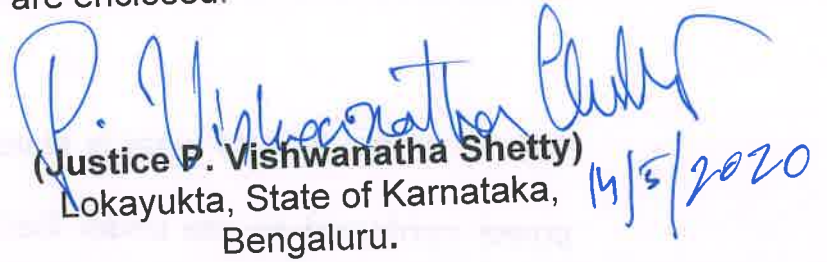 are enclosed.
P. Vishwanatha Shetty
(Justice P. Vishwanatha Shetty)
Lokayukta, State of Karnataka,
Bengaluru.
14/5/2020